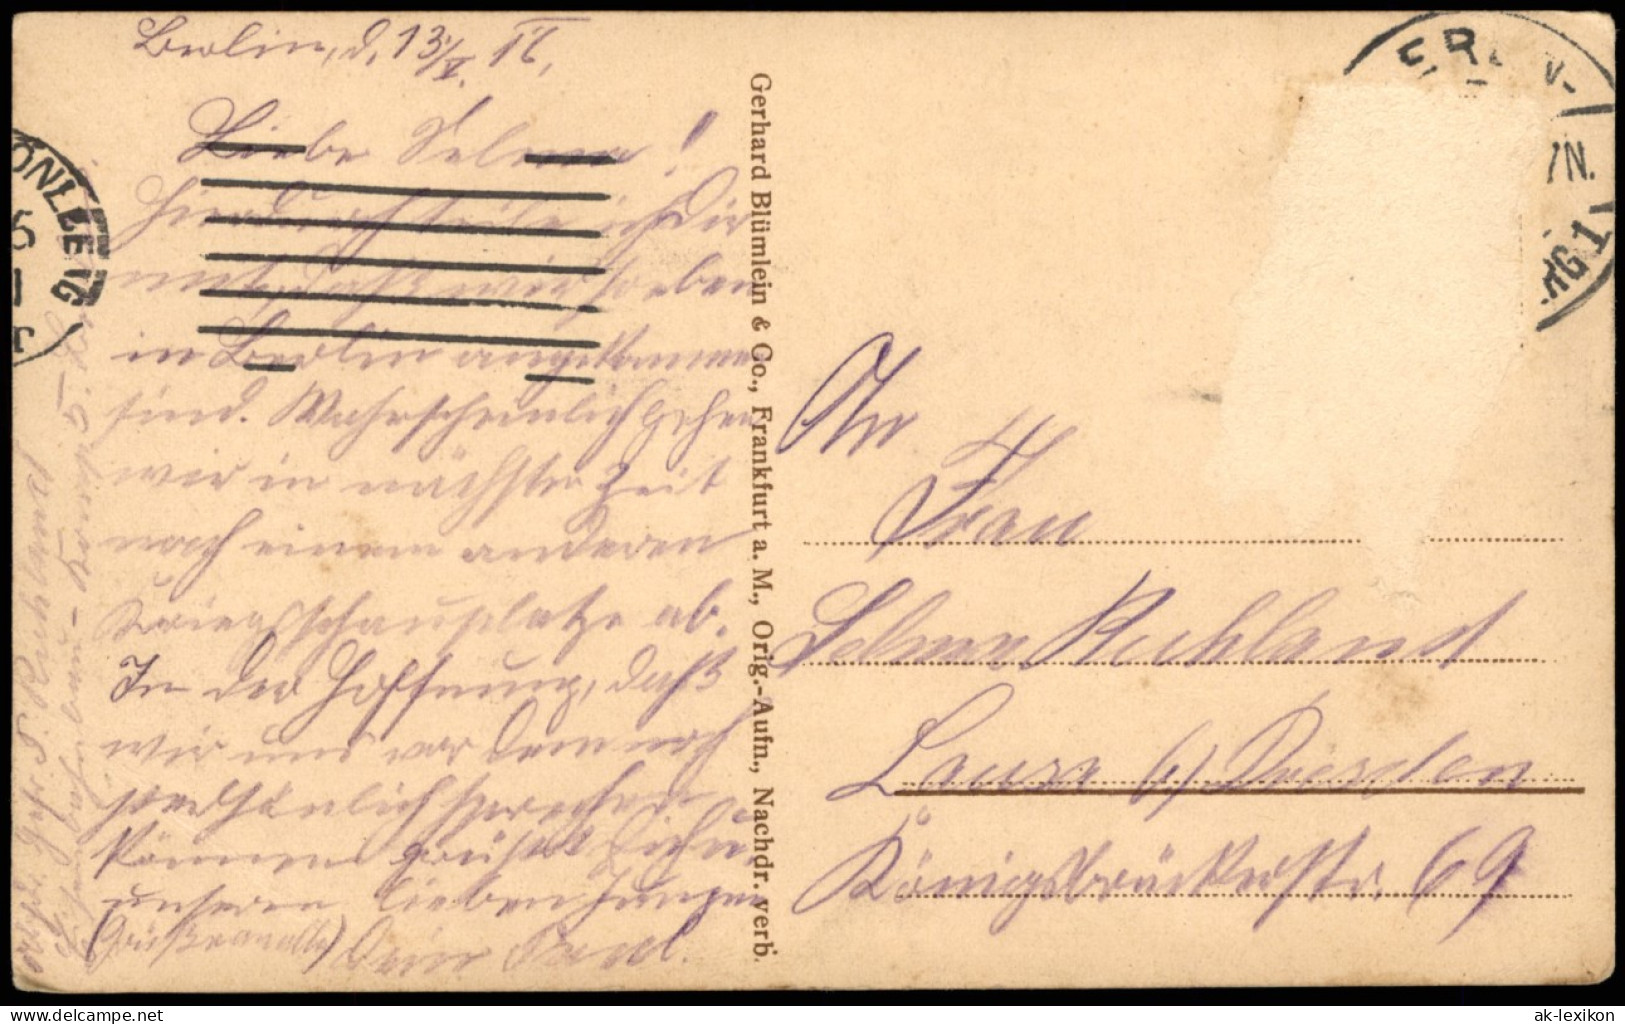 Berlin, d. 13./V. 16.
Liebe Selma!
Hierdurch teile ich Dir
mit, daß wir soeben
in Berlin angekommen
sind. Wahrscheinlich gehen
wir in nächster Zeit
nach einem anderen
Kriegsschauplatze ab.
In der Hoffnung, daß
wir uns vor dem noch
persönlich sprechen
können grüßt Dich u.
unseren lieben Jungen
(Grüße an alle) Dein Paul.
Absdr. Gefr. P. Ruhland
Gerhard Blümlein & Co., Frankfurt a. M., Orig.-Aufn., Nachdr. verb.
ÖNEBERG 1
An
Frau
Selma Ruhland
Lausa b/ Dresden
Königsbrückerstr. 69
ak-lexikon.de
ak-lexikon